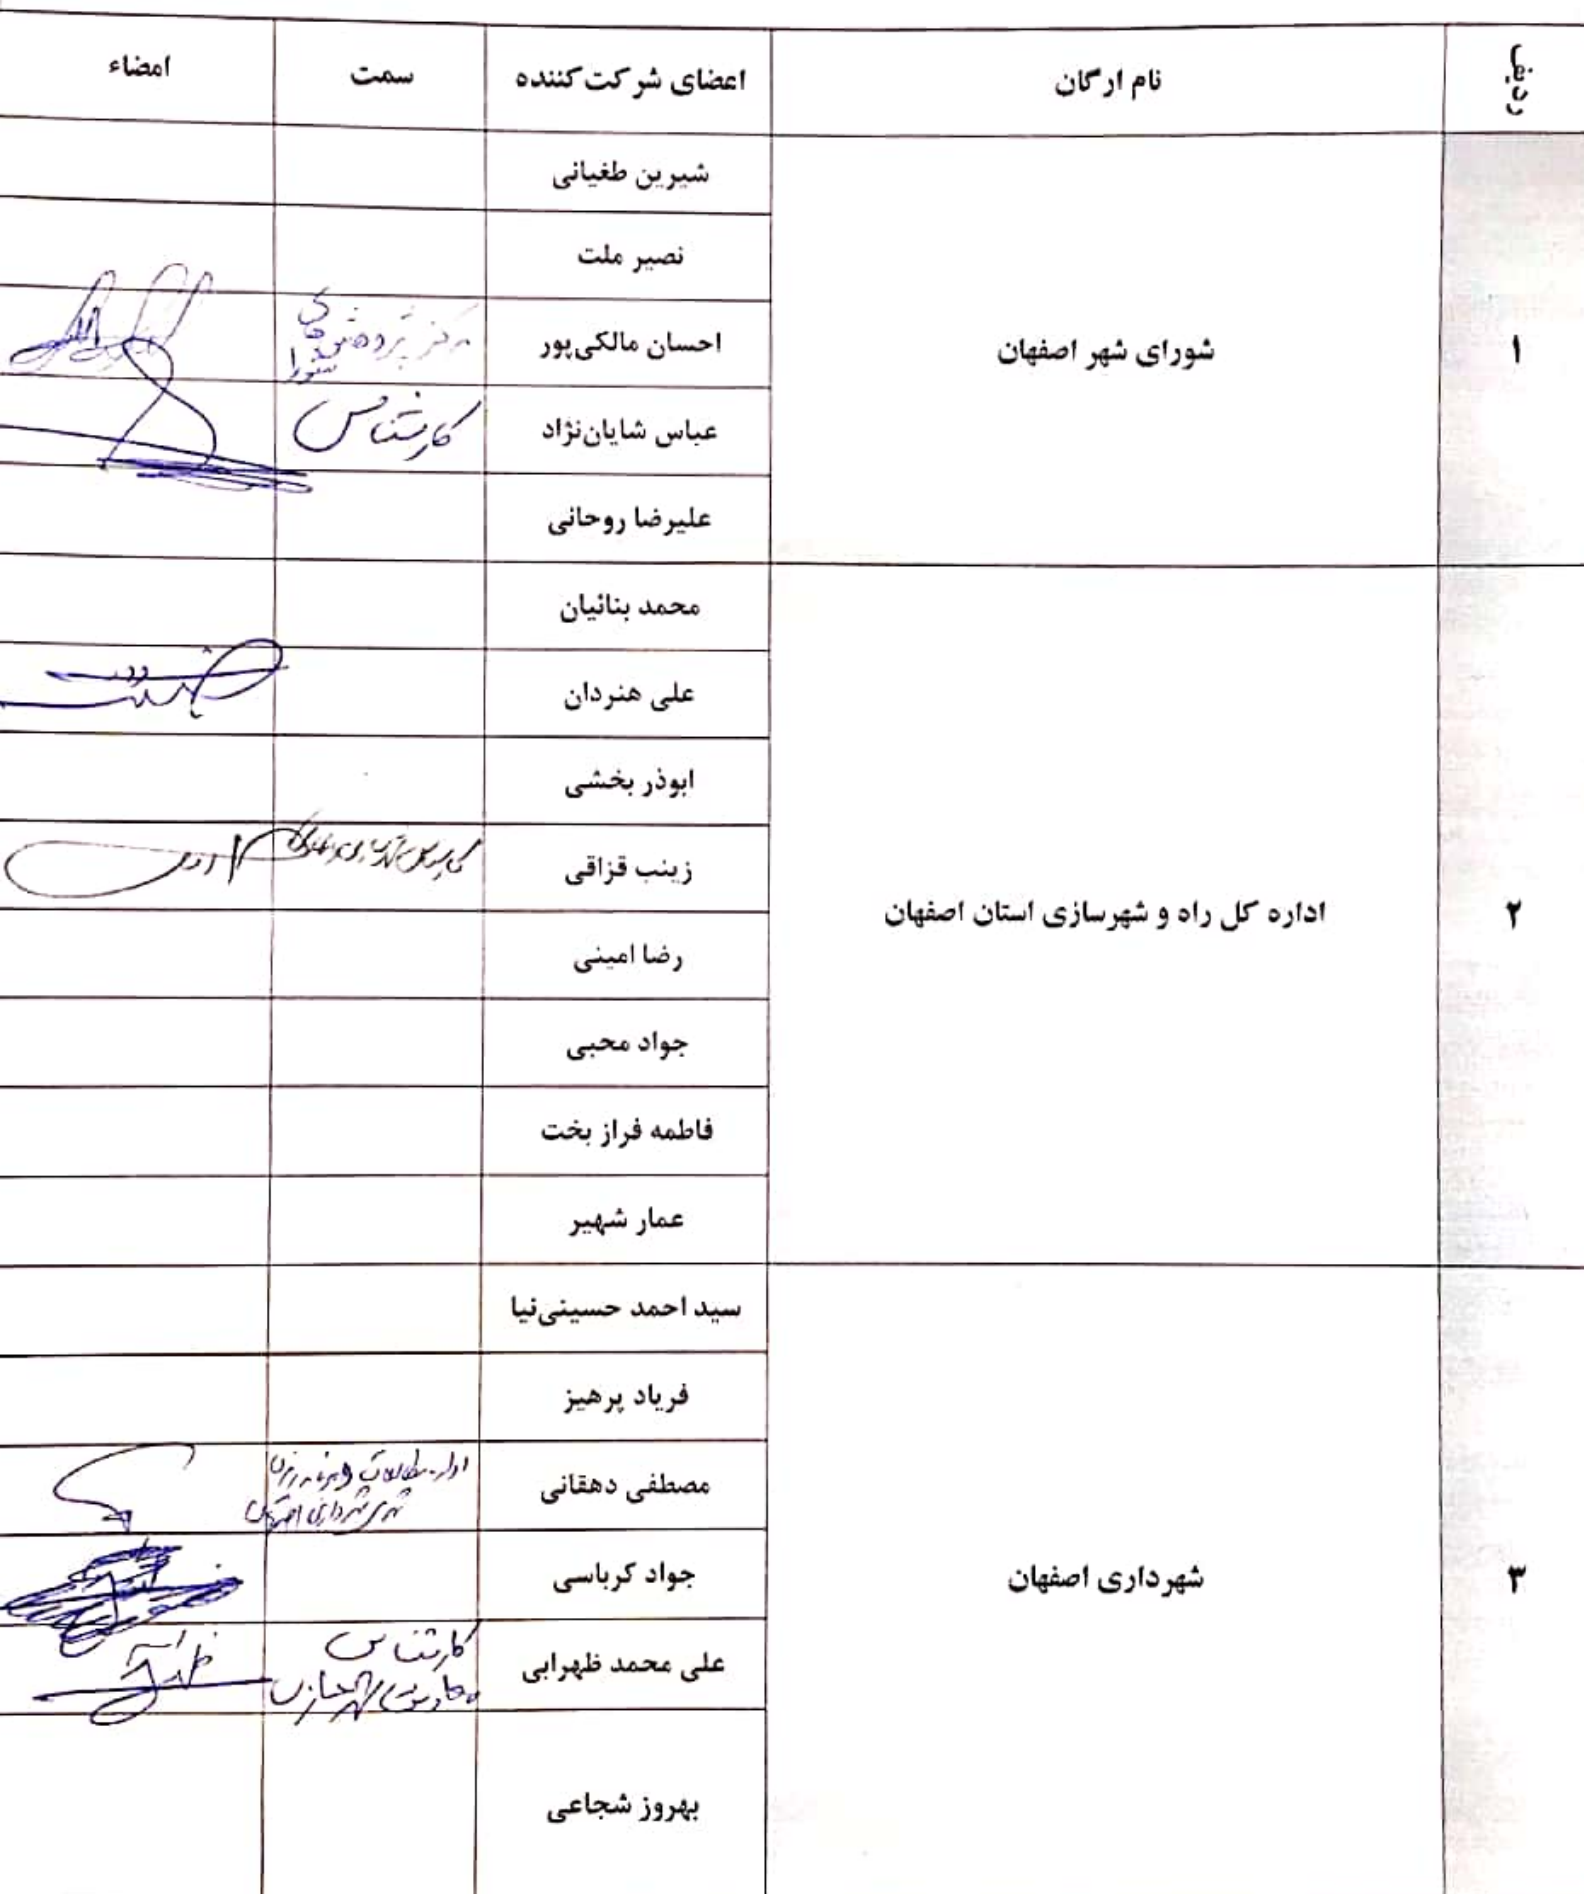 ردیف نام ارگان اعضای شرکت‌کننده سمت امضاء
۱ شورای شهر اصفهان
شیرین طغیانی
نصیر ملت
احسان مالکی‌پور مرکز پژوهش های شورا
عباس شایان‌نژاد کارشناس
علیرضا روحانی
۲ اداره کل راه و شهرسازی استان اصفهان
محمد بنائیان
علی هنردان
ابوذر بخشی
زینب قزاقی
رضا امینی
جواد محبی
فاطمه فراز بخت
عمار شهیر
۳ شهرداری اصفهان
سید احمد حسینی‌نیا
فریاد پرهیز
مصطفی دهقانی اداره مطالعات و برنامه ریزی
شهری شهرداری اصفهان
جواد کرباسی
علی محمد ظهرابی کارشناس
معاونت شهرسازی
بهروز شجاعی